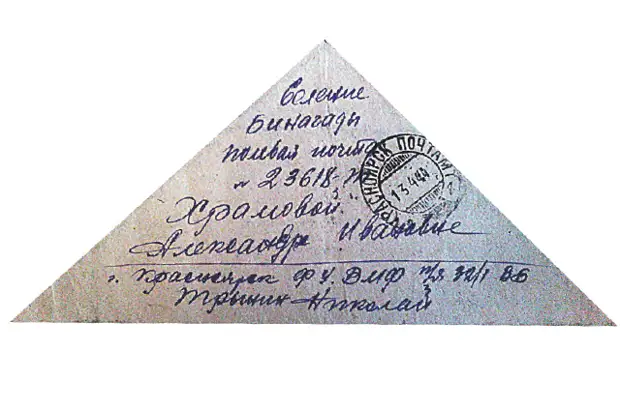 Селение
Бинагады
полевая почта
№ 23618-Ж
Храмовой
Александре Ивановне
г. Красноярск ФУ ВМФ п/я
Трынин Николай
КРАСНОЯРСК ПОЧТАМТ
13 4